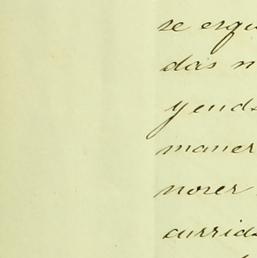 se esqu
das n
yends
maner
norer
currids